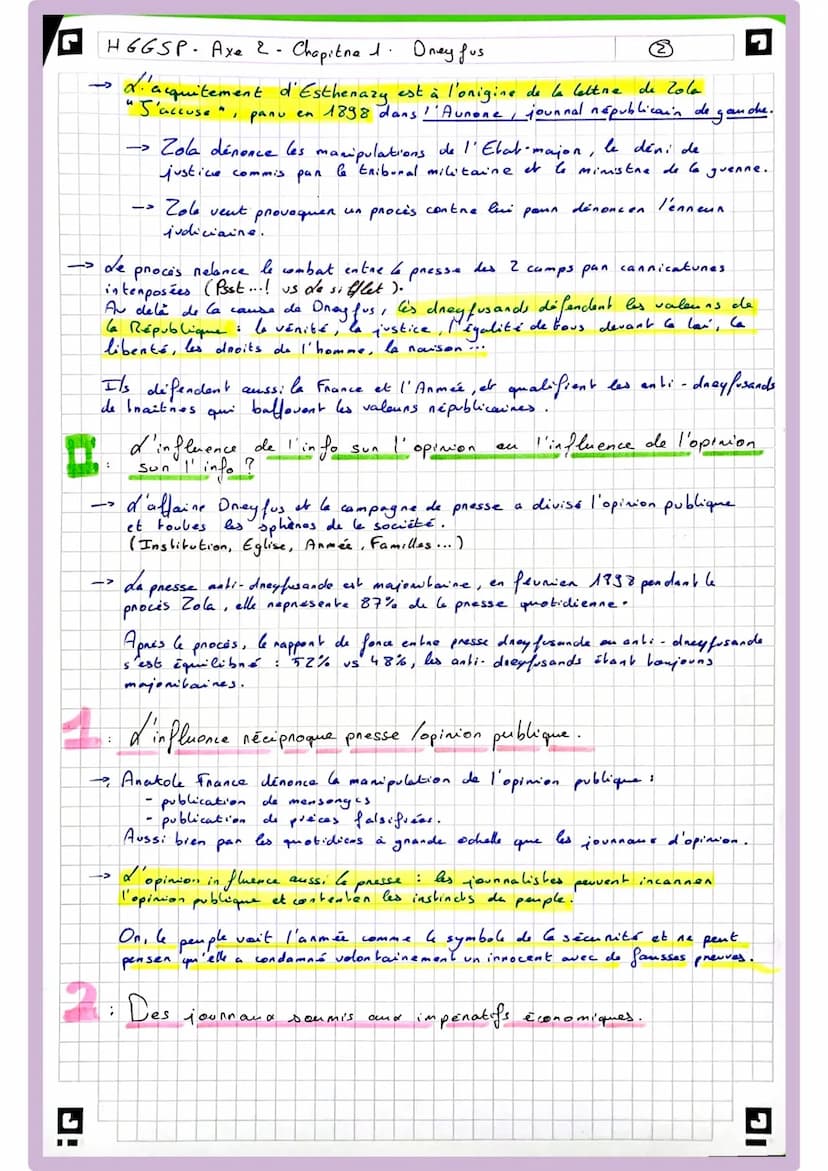 HGGSP - Axe 2 - Chapitre 1 . Dreyfus
②
→ L'acquitement d'Estherazy est à l'origine de la lettre de Zola
"J'accuse", paru en 1898 dans l'Aurore, journal républicain de gauche.
→ Zola dénonce les manipulations de l'Etat-major, le déni de
justice commis par le tribunal militaire et le ministre de la guerre.
→ Zola veut provoquer un procès contre lui pour dénoncer l'erreur
judiciaire.
→ Le procès relance le combat entre la presse des 2 camps par carricatures
interposées (Psst...! vs Le sifflet).
Au delà de la cause de Dreyfus, les dreyfusards défendent les valeurs de
la République : la vérité, la justice, l'égalité de tous devant la loi, la
liberté, les droits de l'homme, la raison...
Ils défendent aussi la France et l'Armée, et qualifient les anti-dreyfusards
de traitres qui baffouent les valeurs républicaines.
II : L'influence de l'info sur l'opinion ou l'influence de l'opinion
sur l'info ?
→ L'affaire Dreyfus et la campagne de presse a divisé l'opinion publique
et toutes les sphères de la société.
(Institution, Eglise, Armée, Familles...)
→ La presse anti-dreyfusarde est majoritaire, en février 1898 pendant le
procès Zola, elle représente 87% de la presse quotidienne.
Après le procès, le rapport de force entre presse dreyfusarde ou anti-dreyfusarde
s'est équilibré : 52% vs 48%, les anti-dreyfusards étant toujours
majoritaires.
1 : L'influence réciproque presse/opinion publique.
→ Anatole France dénonce la manipulation de l'opinion publique :
- publication de mensonges
- publication de pièces falsifiées.
Aussi bien par les quotidiens à grande echelle que les journaux d'opinion.
→ L'opinion influence aussi la presse : les journalistes peuvent incarner
l'opinion publique et contenter les instincts du peuple.
Or, le peuple voit l'armée comme le symbole de la sécurité et ne peut
penser qu'elle a condamné volontairement un innocent avec de fausses preuves.
2 : Des journaux soumis aux impératifs économiques.